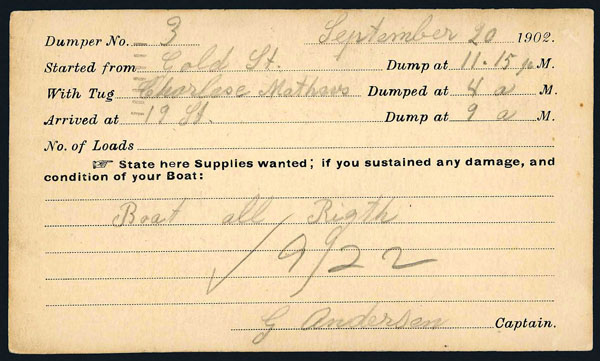 Dumper No. 3 September 20 1902.
Started from Gold St. Dump at 11.15 p M.
With Tug Charlese Mathews Dumped at 4 a M.
Arrived at 19 St. Dump at 9 a M.
No. of Loads
☞ State here Supplies wanted; if you sustained any damage, and
condition of your Boat:
Boat all Rigth
✓ 9/22
G Andersen Captain.